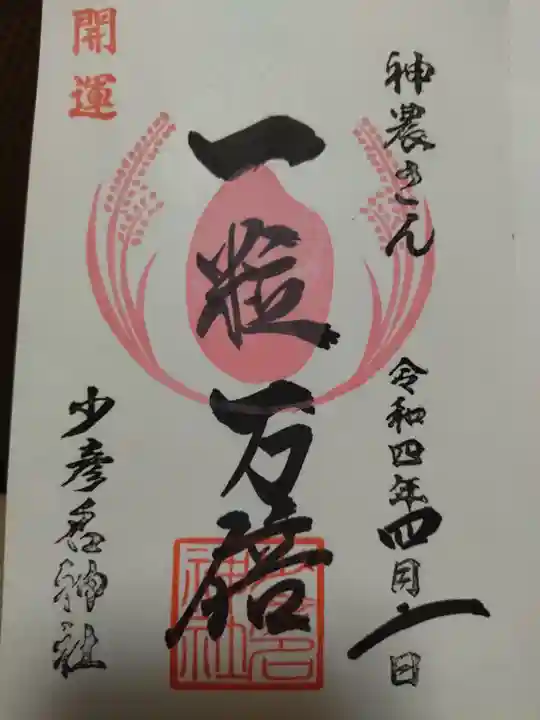 神農さん
令和四年四月一日
一粒万倍
開運
少彦名神社
少彦名神社